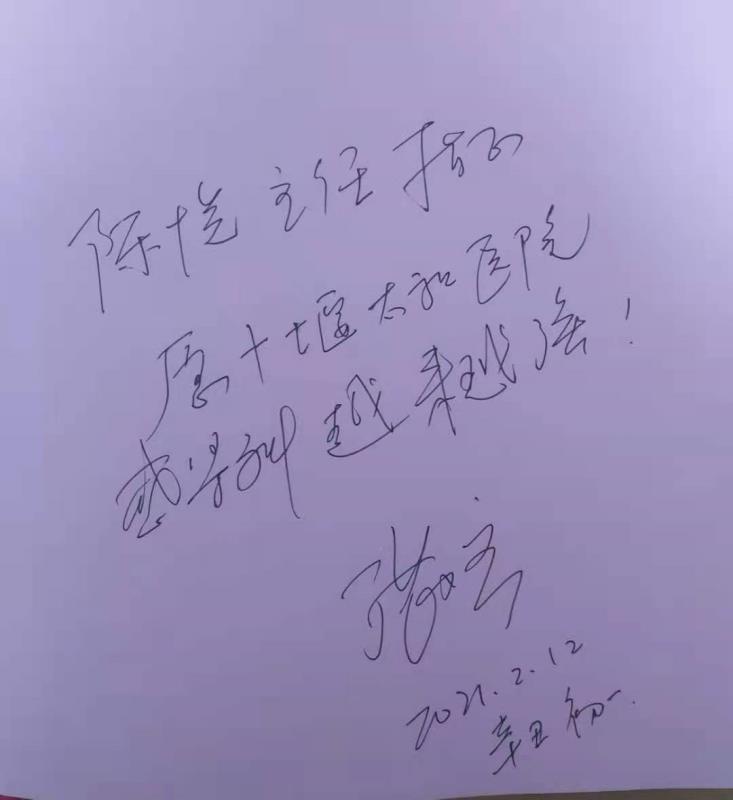 陈悦主任指正
愿十堰太和医院
感染科越来越强！
张文宏
2021.2.12
辛丑初一